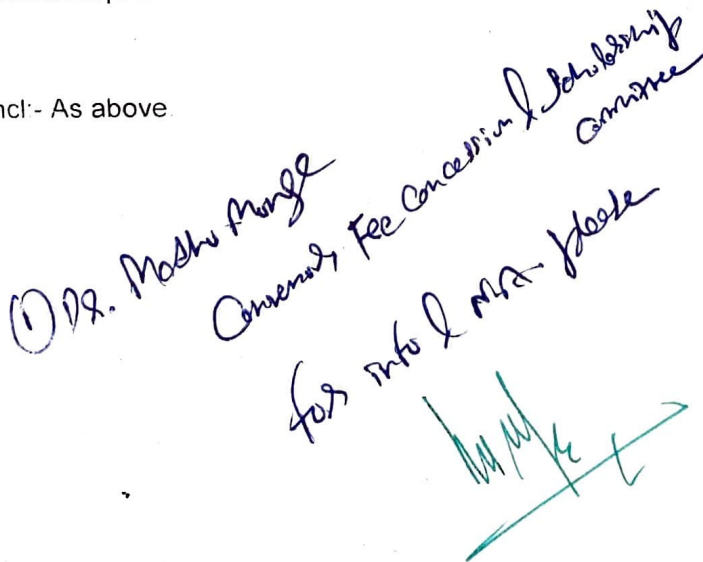 ncl:- As above
① DR. Madhu Monga
Convenor, Fee Concession & Scholarship
Committee
for info & n.a. please